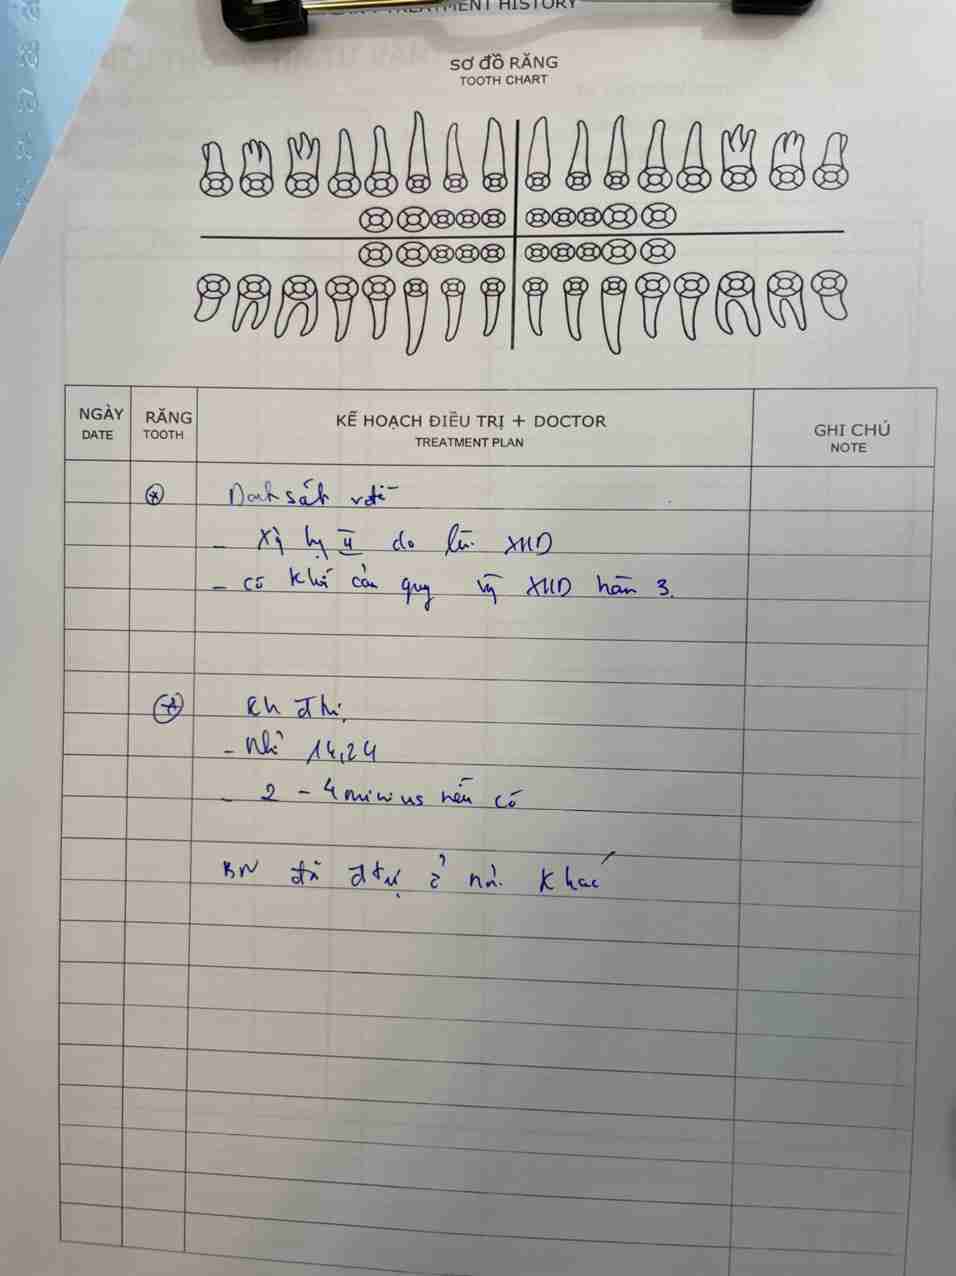 TREATMENT HISTORY
SƠ ĐỒ RĂNG
TOOTH CHART
NGÀY
DATE
RĂNG
TOOTH
KẾ HOẠCH ĐIỀU TRỊ + DOCTOR
TREATMENT PLAN
GHI CHÚ
NOTE
Danh sách vđề
- II do lùi XHD
- có khí cản quy XHD hàm 3.
Kh đtrị
- Nhổ 14,24
- 2 - 4 minivis nếu có
BN đã đtrị ở nơi khác